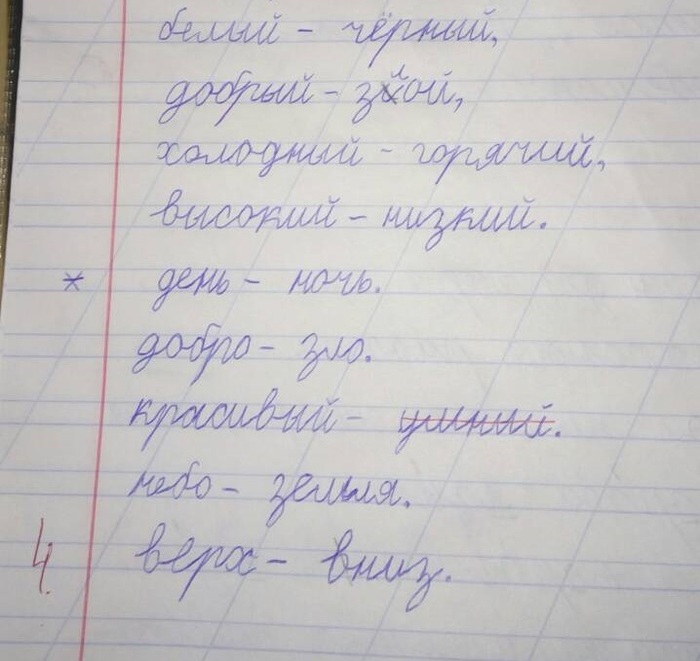 белый – чёрный,
добрый – злой,
холодный – горячий,
высокий – низкий.
* день – ночь.
добро – зло.
красивый – умный.
небо – земля.
4. верх – вниз.